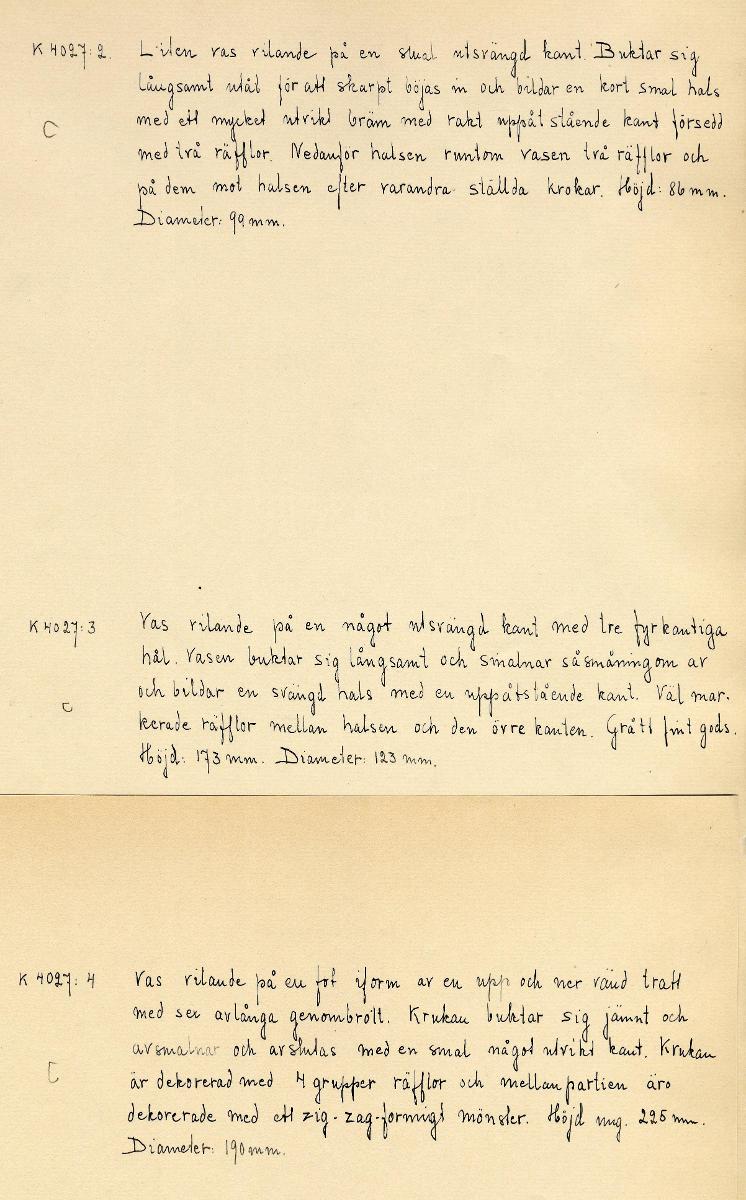 K 4027:2. Liten vas vilande på en smal utsvängd kant. Buktar sig
långsamt utåt för att skarpt böjas in och bildar en kort smal hals
C med ett mycket utvikt bräm med rakt uppåt stående kant försedd
med två räfflor. Nedanför halsen runtom vasen två räfflor och
på dem mot halsen efter varandra ställda krokar. Höjd: 86 mm.
Diameter: 99 mm.
K 4027:3 Vas vilande på en något utsvängd kant med tre fyrkantiga
hål. Vasen buktar sig långsamt och smalnar såsmåningom av
C och bildar en svängd hals med en uppåtstående kant. Väl mar-
kerade räfflor mellan halsen och den övre kanten. Grått fint gods.
Höjd: 173 mm. Diameter: 123 mm.
K 4027:4 Vas vilande på en fot iform av en upp och ner vänd tratt
med sex avlånga genombrott. Krukan buktar sig jämnt och
C avsmalnar och avslutas med en smal något utvikt kant. Krukan
är dekorerad med 4 grupper räfflor och mellanpartien äro
dekorerade med ett zig-zag-formigt mönster. Höjd ung. 225 mm.
Diameter: 190 mm.